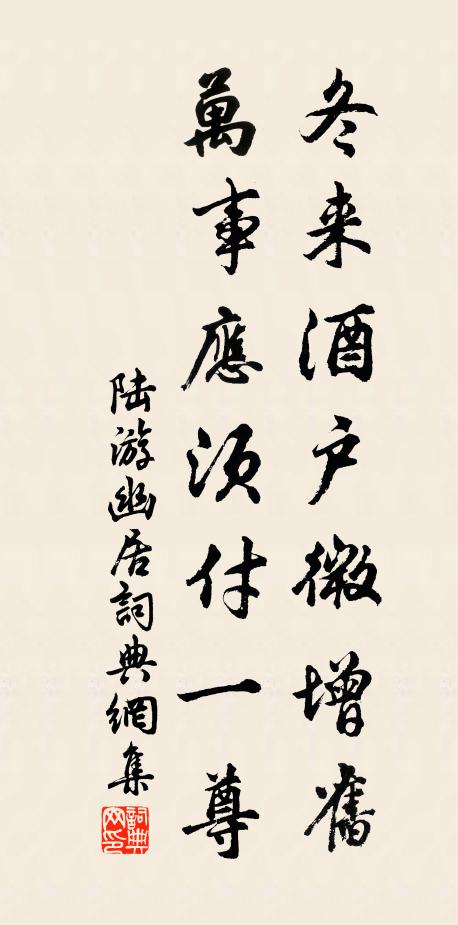 冬来酒户微增舊
萬事應須付一尊
陆游幽居詞典網集
詞典
网印